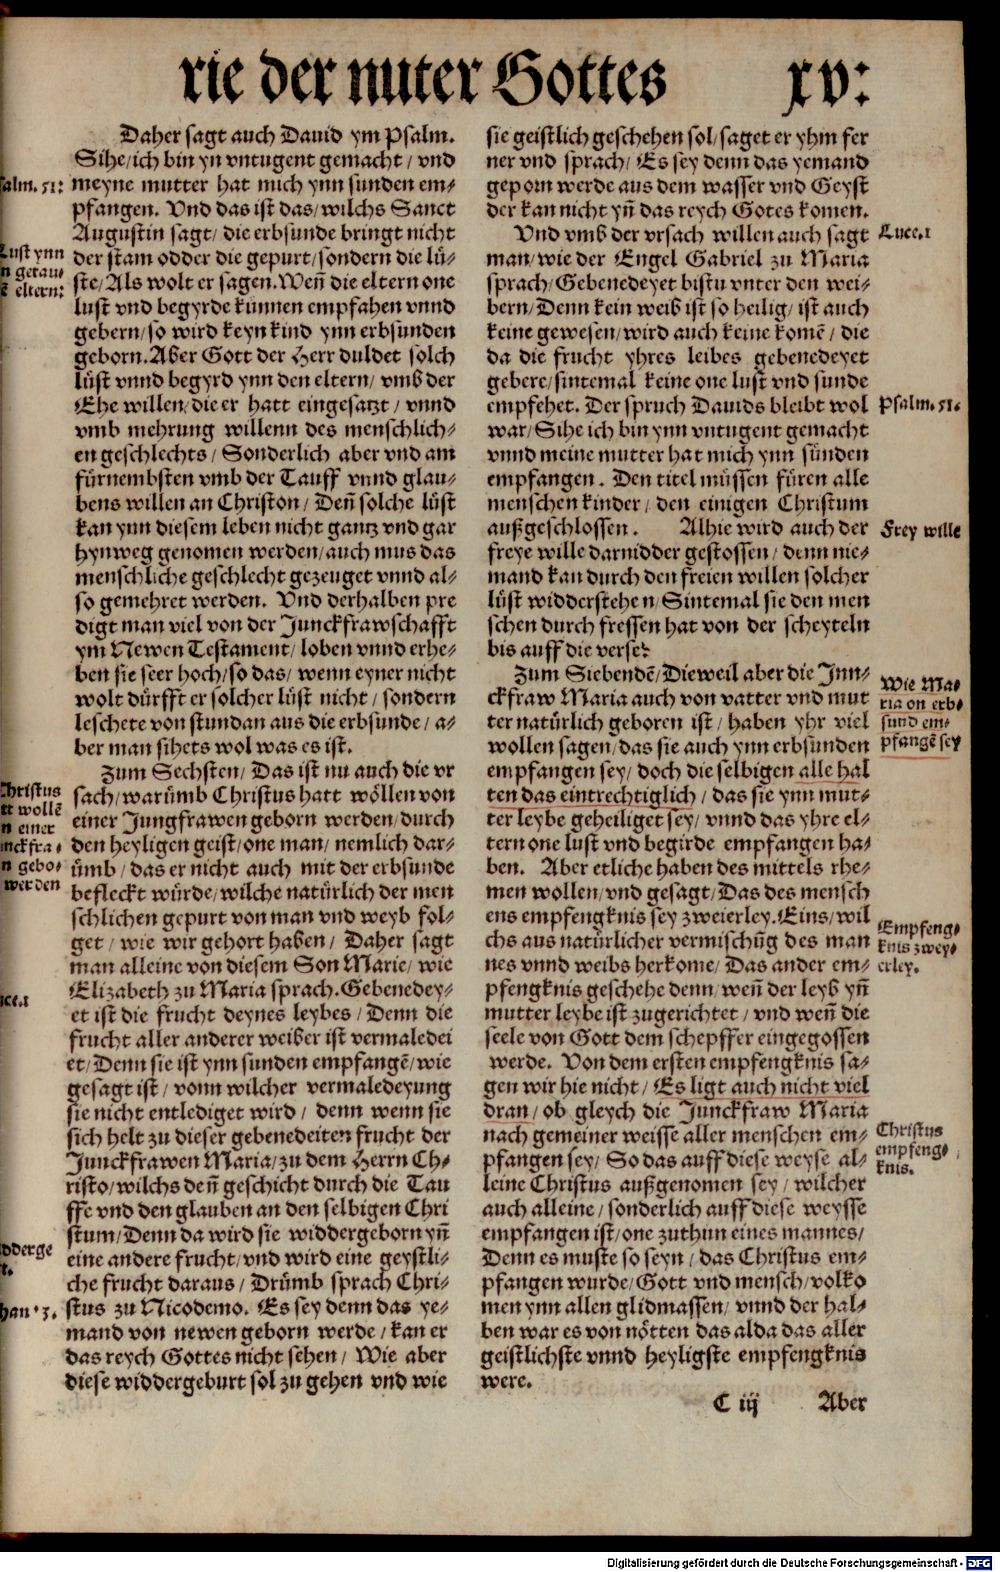 rie der muter Gottes xv:
Daher sagt auch Dauid ym Psalm.
Sihe/ich bin yn vntugent gemacht/vnd
meyne mutter hat mich ynn sunden em⸗
pfangen. Vnd das ist das/wilchs Sanct
Augustin sagt/die erbsunde bringt nicht
der stam odder die gepurt/sondern die lü⸗
ste/Als wolt er sagen. Weñ die eltern one
lust vnd begyrde künnen empfahen vnnd
gebern/so wird keyn kind ynn erbsunden
geborn. Aber Gott der Herr duldet solch
lüst vnnd begyrd ynn den eltern/vmb der
Ehe willen/die er hatt eingesatzt/vnnd
vmb mehrung willenn des menschlich⸗
en geschlechts/Sonderlich aber vnd am
fürnembsten vmb der Tauff vnnd glau⸗
bens willen an Christon/Deñ solche lüst
kan ynn diesem leben nicht gantz vnd gar
hynweg genomen werden/auch mus das
menschliche geschlecht gezeuget vnnd al⸗
so gemehret werden. Vnd derhalben pre
digt man viel von der Junckfrawschafft
ym Newen Testament/loben vnnd erhe⸗
ben sie seer hoch/so das/wenn eyner nicht
wolt dürfft er solcher lüst nicht/sondern
leschete von stundan aus die erbsunde/a⸗
ber man sihets wol was es ist.
Zum Sechsten/Das ist nu auch die vr
sach/warümb Christus hatt wöllen von
einer Jungfrawen geborn werden/durch
den heyligen geist/one man/nemlich dar⸗
ümb/das er nicht auch mit der erbsunde
befleckt würde/wilche natürlich der men
schlichen gepurt von man vnd weyb fol⸗
get/wie wir gehort haben/Daher sagt
man alleine von diesem Son Marie/wie
Elizabeth zu Maria sprach. Gebenedey⸗
et ist die frucht deynes leybes/Denn die
frucht aller anderer weiber ist vermaledei
et/Denn sie ist ynn sunden empfangē/wie
gesagt ist/vonn wilcher vermaledeyung
sie nicht entlediget wird/denn wenn sie
sich helt zu dieser gebenedeiten frucht der
Junckfrawen Maria/zu dem Herrn Ch⸗
risto/wilchs deñ geschicht durch die Tau
ffe vnd den glauben an den selbigen Chri
stum/Denn da wird sie widdergeborn yñ
eine andere frucht/vnd wird eine geystli⸗
che frucht daraus/Drümb sprach Chri⸗
stus zu Nicodemo. Es sey denn das ye⸗
mand von newen geborn werde/kan er
das reych Gottes nicht sehen/Wie aber
diese widdergeburt sol zu gehen vnd wie
salm. 51:
Lust ynn
n getau⸗
ē eltern:
Christus
tt wollē
n einer
nckfra⸗
n gebo⸗
werden
uce.1
dderge
t.
han. 3.
sie geistlich geschehen sol/saget er yhm fer
ner vnd sprach/Es sey denn das yemand
geporn werde aus dem wasser vnd Geyst
der kan nicht yñ das reych Gotes komen.
Vnd vmb der vrsach willen auch sagt
man/wie der Engel Gabriel zu Maria
sprach/Gebenedeyet bistu vnter den wei⸗
bern/Denn kein weib ist so heilig/ist auch
keine gewesen/wird auch keine komē/die
da die frucht yhres leibes gebenedeyet
gebere/sintemal keine one lust vnd sunde
empfehet. Der spruch Dauids bleibt wol
war/Sihe ich bin ynn vntugent gemacht
vnnd meine mutter hat mich ynn sünden
empfangen. Den titel müssen füren alle
menschen kinder/den einigen Christum
außgeschlossen. Alhie wird auch der
freye wille darnidder gestossen/denn nie⸗
mand kan durch den freien willen solcher
lüst widderstehen/Sintemal sie den men
schen durch fressen hat von der scheyteln
bis auff die verse:
Zum Siebendē/Dieweil aber die Jun⸗
ckfraw Maria auch von vatter vnd mut
ter natürlich geboren ist/haben yhr viel
wollen sagen/das sie auch ynn erbsunden
empfangen sey/doch die selbigen alle hal
ten das eintrechtiglich/das sie ynn mut⸗
ter leybe geheiliget sey/vnnd das yhre el⸗
tern one lust vnd begirde empfangen ha⸗
ben. Aber etliche haben des mittels rhe⸗
men wollen/vnd gesagt/Das des mensch
ens empfengknis sey zweierley. Eins/wil
chs aus natürlicher vermischūg des man
nes vnnd weibs herkome/Das ander em⸗
pfengknis geschehe denn/weñ der leyb yñ
mutter leybe ist zugerichtet/vnd weñ die
seele von Gott dem schepffer eingegossen
werde. Von dem ersten empfengknis sa⸗
gen wir hie nicht/Es ligt auch nicht viel
dran/ob gleych die Junckfraw Maria
nach gemeiner weisse aller menschen em⸗
pfangen sey/So das auff diese weyse al⸗
leine Christus außgenomen sey/wilcher
auch alleine/sonderlich auff diese weysse
empfangen ist/one zuthun eines mannes/
Denn es muste so seyn/das Christus em⸗
pfangen wurde/Gott vnd mensch/volko
men ynn allen glidmassen/vnnd der hal⸗
ben war es von nötten das alda das aller
geistlichste vnnd heyligste empfengknis
were.
Luce.1
Psalm. 51.
Frey wille
Wie Ma⸗
ria on erb⸗
sund em⸗
pfangē sey
Empfeng⸗
knis zwey⸗
erley.
Christus
empfeng⸗
knis.
C iij Aber
Digitalisierung gefördert durch die Deutsche Forschungsgemeinschaft - DFG